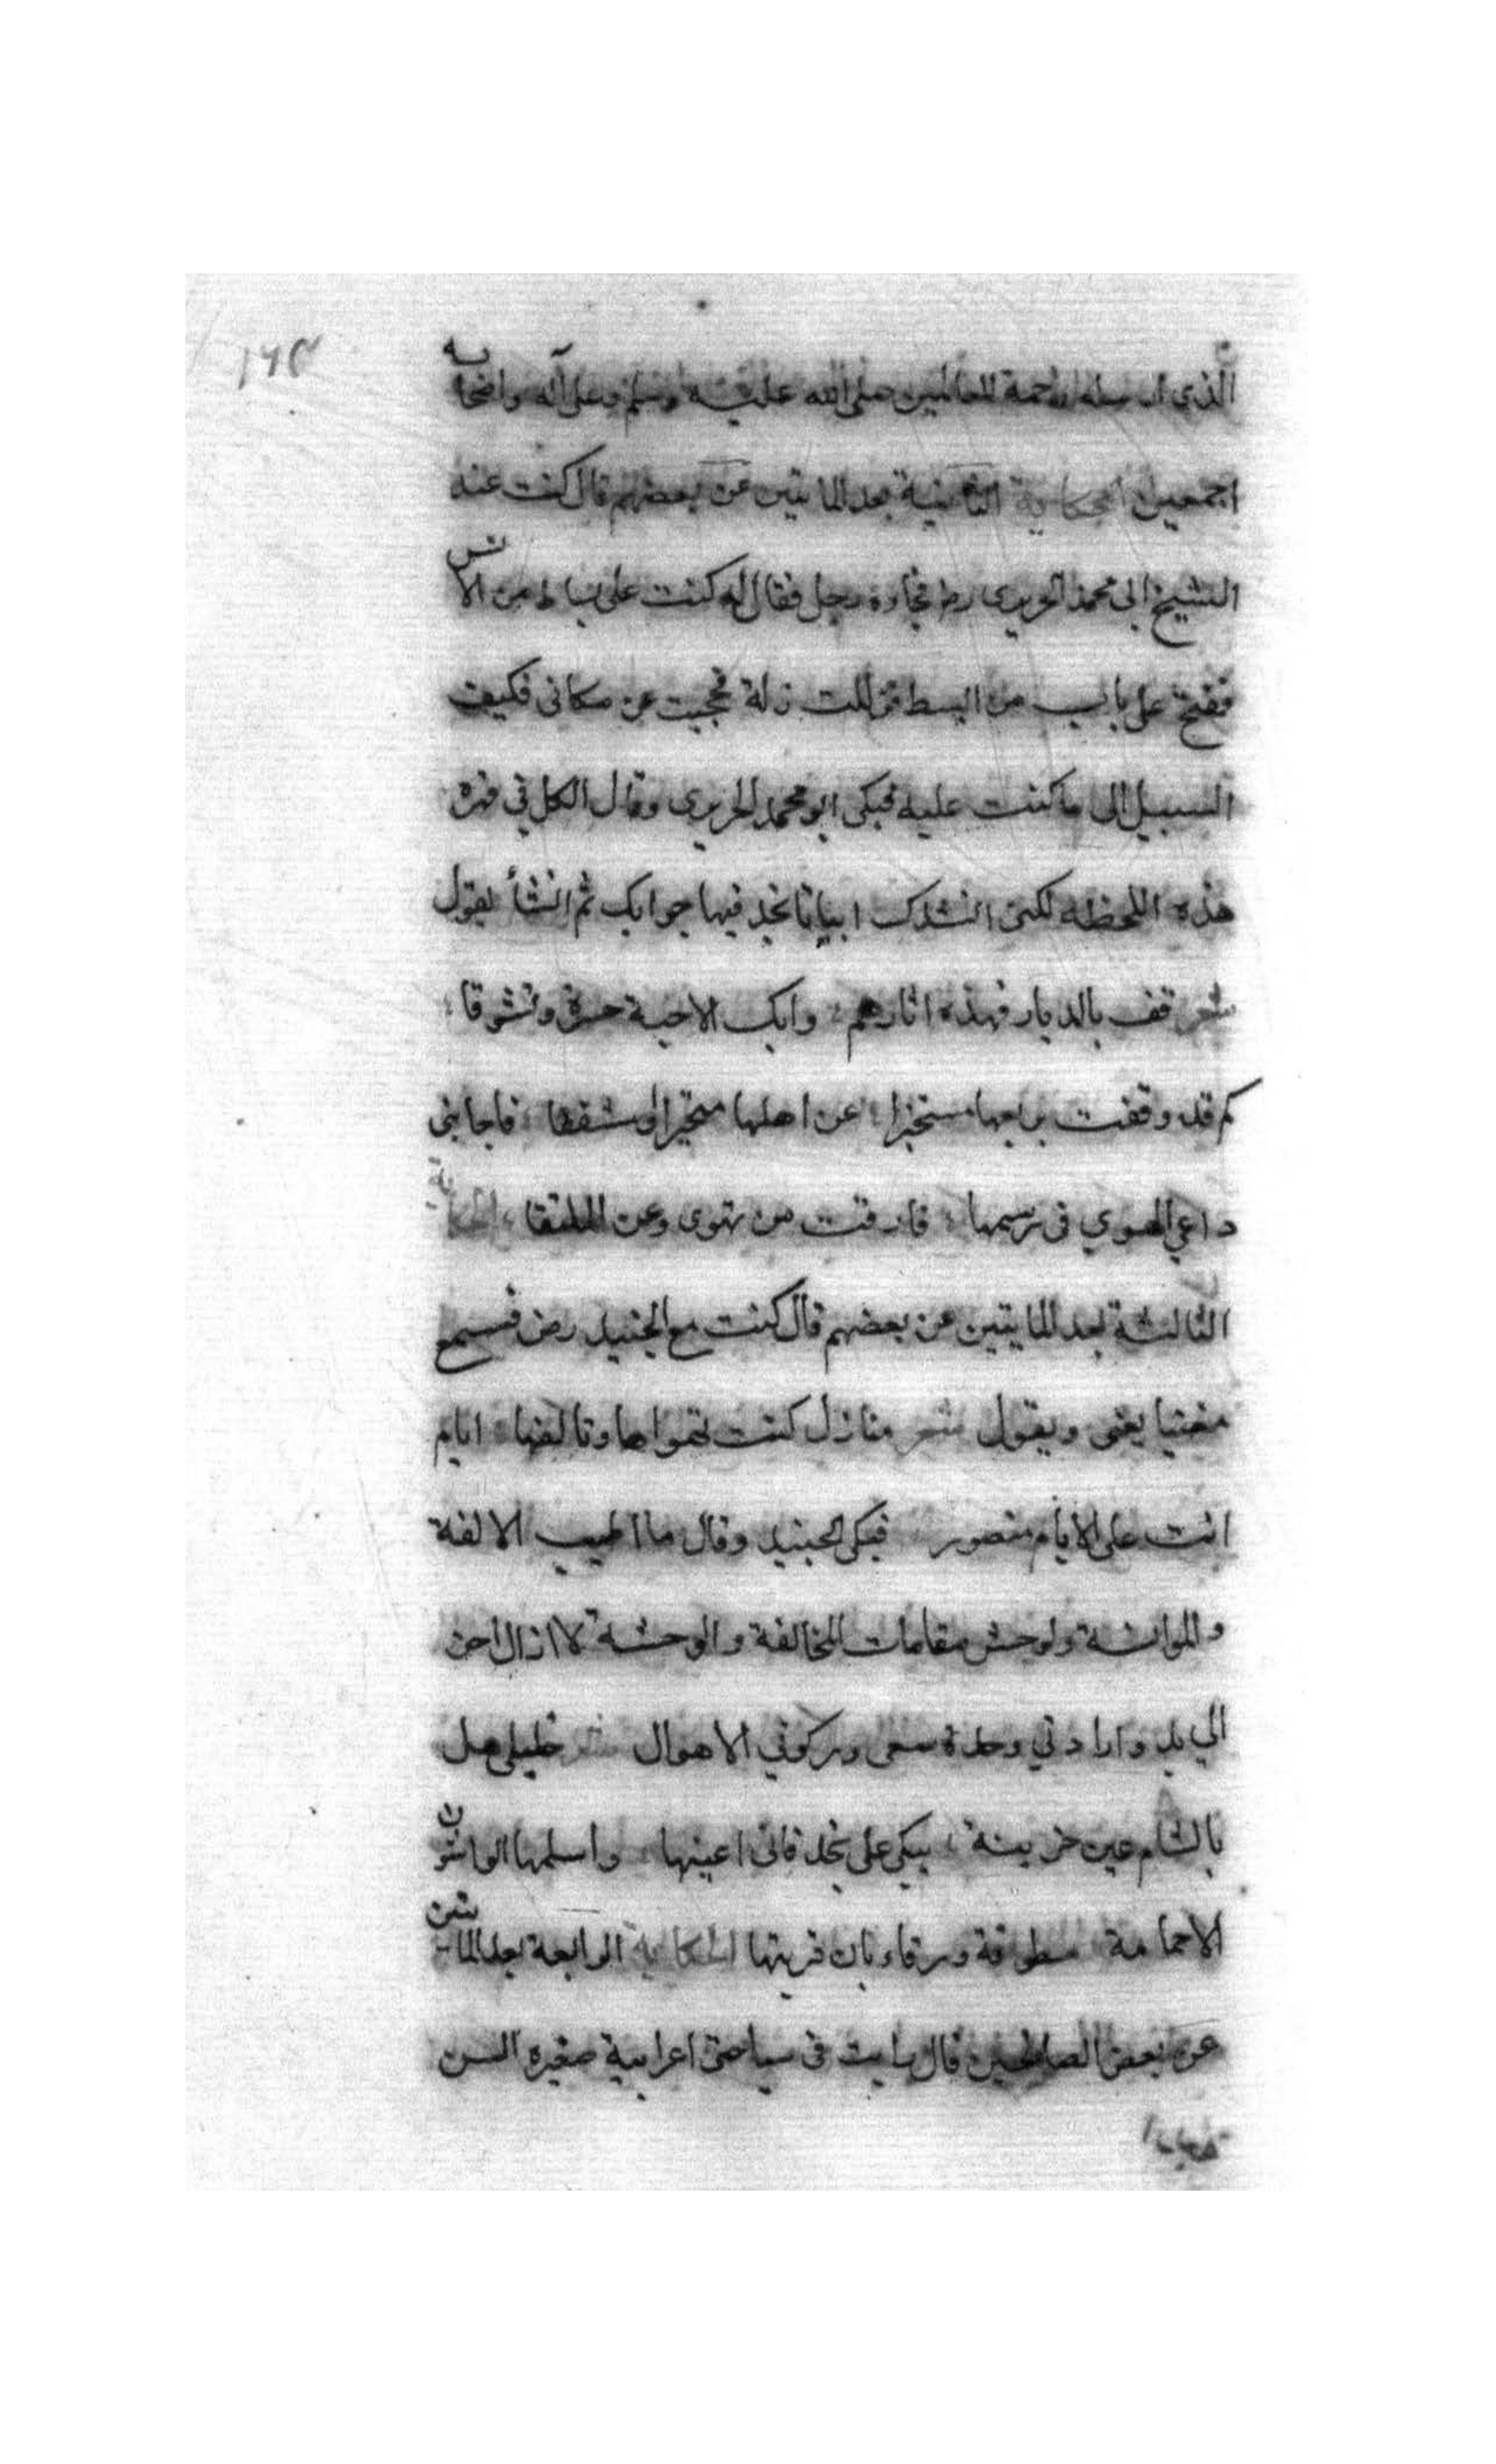 ١٦٥
الذي ارسله رحمة للعالمين صلى الله عليه وسلم وعلى آله واصحابه
اجمعين الحكاية الثانية بعد المايتين عن بعضهم قال كنت عند
الشيخ ابى محمد الحريرى رض فجاءه رجل فقال له كنت على بساط من الانس
ففتح على باب من البسط فزللت زلة فحجبت عن مكانى فكيف
السبيل الى ما كنت عليه فبكى ابو محمد الحريرى وقال الكل فى قهر
هذه اللحظة لكنى انشدك ابياتا تجد فيها جوابك ثم انشأ يقول
شعر قف بالديار فهذه اثارهم وابك الاحبة حسرة وتشوقا
كم قد وقفت بها مستخبرا عن اهلها متحيرا او مشفقا فاجابنى
داعي الهوي فى رسمها فارقت من تهوى وعز الملتقا الحكاية
الثالثة بعد المايتين عن بعضهم قال كنت مع الجنيد رض فسمع
مغنيا يغنى ويقول شعر منازل كنت تهواها وتالفها ايام
انت على الايام منصور فبكى الجنيد وقال ما اطيب الالفة
والموانسة واوحش مقامات المخالفة والوحشة لا ازال احن
الي بدو ارادتي وحدة سعى وركوبي الاهوال شعر خليلى هل
بالشام عين حزينة تبكى على نجد فانى اعينها واسلمها الواشون
الا حمامة مطوقة ورقاء بان قرينها الحكاية الرابعة بعد المايتين
عن بعض الصالحين قال رايت فى سياحتى اعرابية صغيرة السن